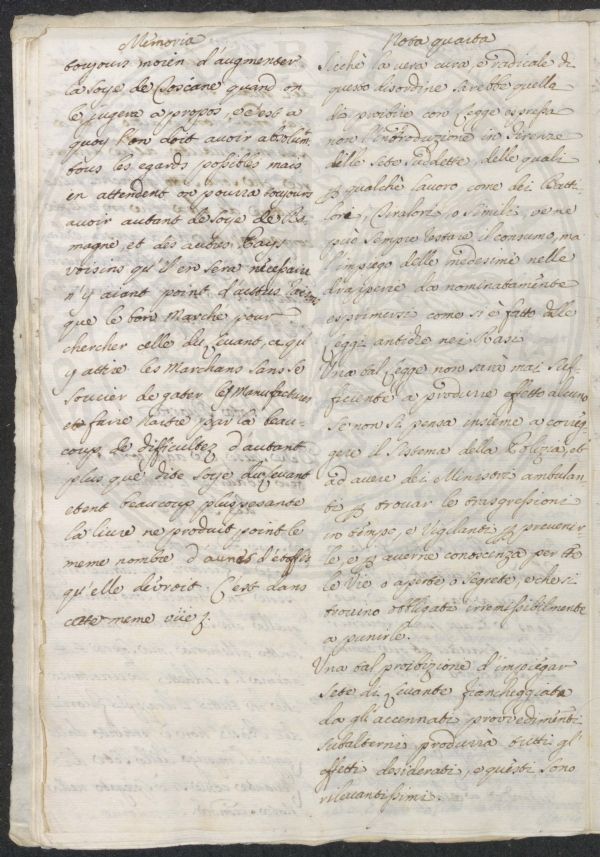 Memoria
toujours moien d'augmenter
la Soye de Toscane quand on
le jugera a propos, e c'est a
quoy l'on doit avoir absolum.
tous les egards posibles mais
en attendent on pourra toujours
avoir autant de Soye de
magne, et des autres Pays
voisins qu'il en sera necessaire
n'y aiant point d'autres
que le bon Marche pour
chercher celle du Levant, ce qu
y attire les Marchans sans se
soucier de gater les Manufactures
et faire naitre par la beau-
coup de difficultez d'autant
plus que dite Soye du Levant
etent beaucoup plus pesante
la livre ne produit point le
meme nombre d'aunes d'etoffes
qu'elle devroit. C'est dans
cette meme vüe
Nota quarta
Sicchè la vera cura, e radicale di
questo disordine sarebbe quella
di proibire con Legge espressa
non l'introduzione in Firenze
delle Sete suddette, delle quali
p qualche lavoro come dei Batti-
lori, Tiralori, o Simili, ve ne
può sempre restare il consumo, ma
l'impiego delle medesime nelle
drapperie da nominatamente
esprimersi come si è fatto delle
leggi antiche nei Rasi.
Una tal Legge non sarà mai suf-
ficiente a produrre effetto alcuno
se non si pensa insieme a correg-
gere il Sistema della Polizia, et
ad avere dei Ministri ambulan-
ti p trovar le trasgressioni
in tempo, e Vigilanti p prevenir-
le, e p averne conoscenza per tte
le Vie o aperte o segrete, e che si
trovino obbligati irremissibilmente
a punirle.
Una tal proibizione d'impiegar
Sete di Levante fiancheggiata
da gl'accennati provvedimenti
subalterni produrrà tutti gl'
effetti desiderati, e questi sono
rilevantissimi.